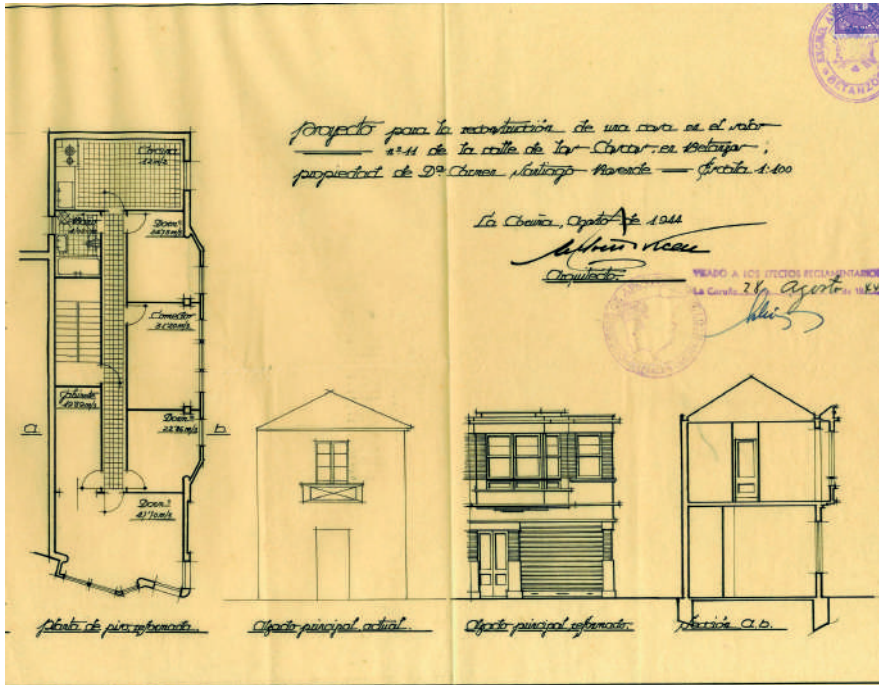 Proyecto para la reconstrucción de una casa en el solar
nº 11 de la calle de las Cascas, en Betanzos,
propiedad de Dª Carmen Santiago Naverde — Escala 1:100
La Coruña, Agosto de 1944
Arquitecto.
VISADO A LOS EFECTOS REGLAMENTARIOS
La Coruña 28 Agosto de 1944
BETANZOS
Cocina
Baño
Dorm.º
Comedor
Gabinete
Dorm.º
a
b
Dorm.º
Planta de piso reformada.
Alzado principal actual.
Alzado principal reformado.
Sección a.b.